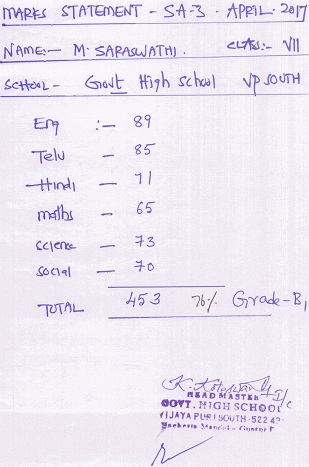 MARKS STATEMENT - SA-3. APRIL. 2017
NAME:- M. SARASWATHI. CLASS:- VII
SCHOOL- Govt High School VP SOUTH
Eng :- 89
Telu - 85
Hindi - 71
maths - 65
science - 73
social - 70
TOTAL 453 76% Grade-B1
HEAD MASTER
GOVT. HIGH SCHOOL
VIJAYA PURI SOUTH-522 43